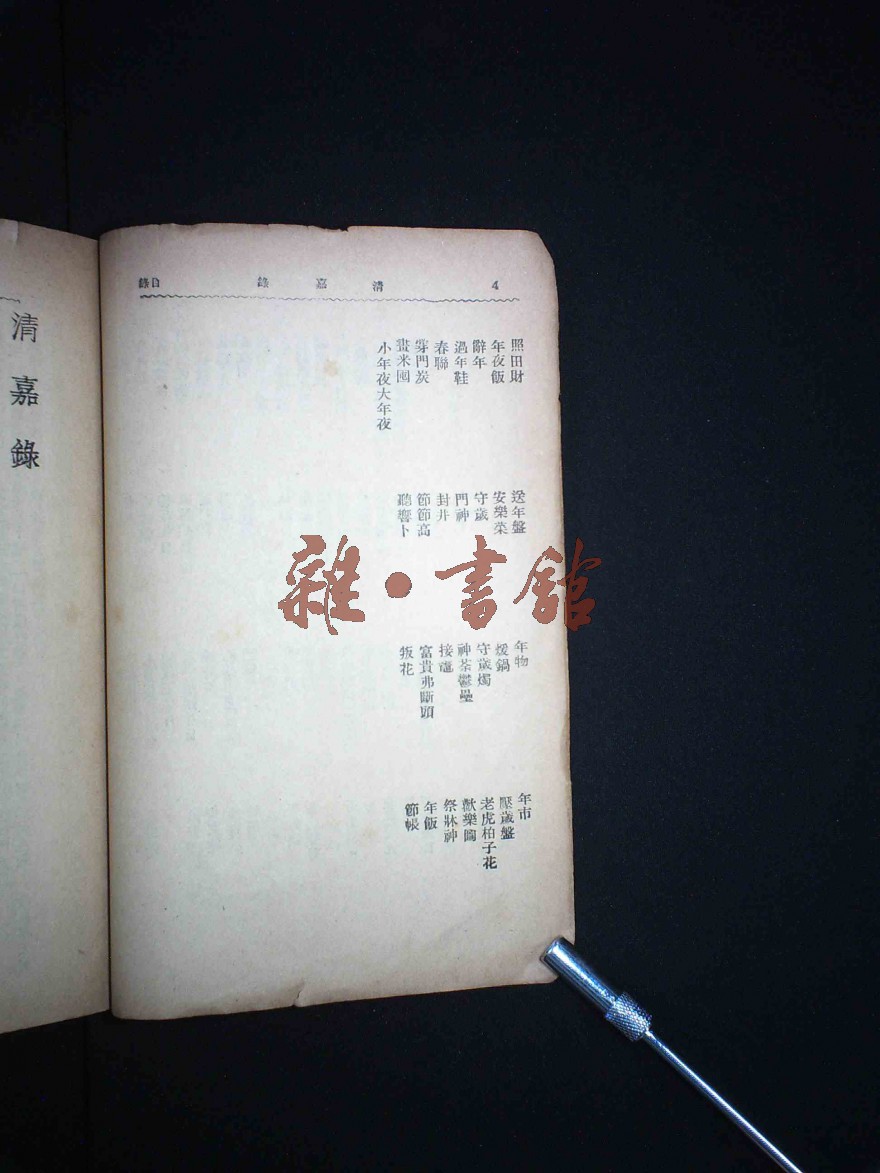 4
清嘉錄
目錄
照田財
年夜飯
辭年
過年鞋
春聯
門炭
畫米囤
小年夜大年夜
送年盤
安樂菜
守歲
門神
封井
節節高
聽響卜
年物
煖鍋
守歲燭
神荼鬱壘
接竈
富貴弗斷頭
叛花
年市
壓歲盤
老虎柏子花
歡樂圖
祭牀神
年飯
節帳
清嘉錄
雜·書館